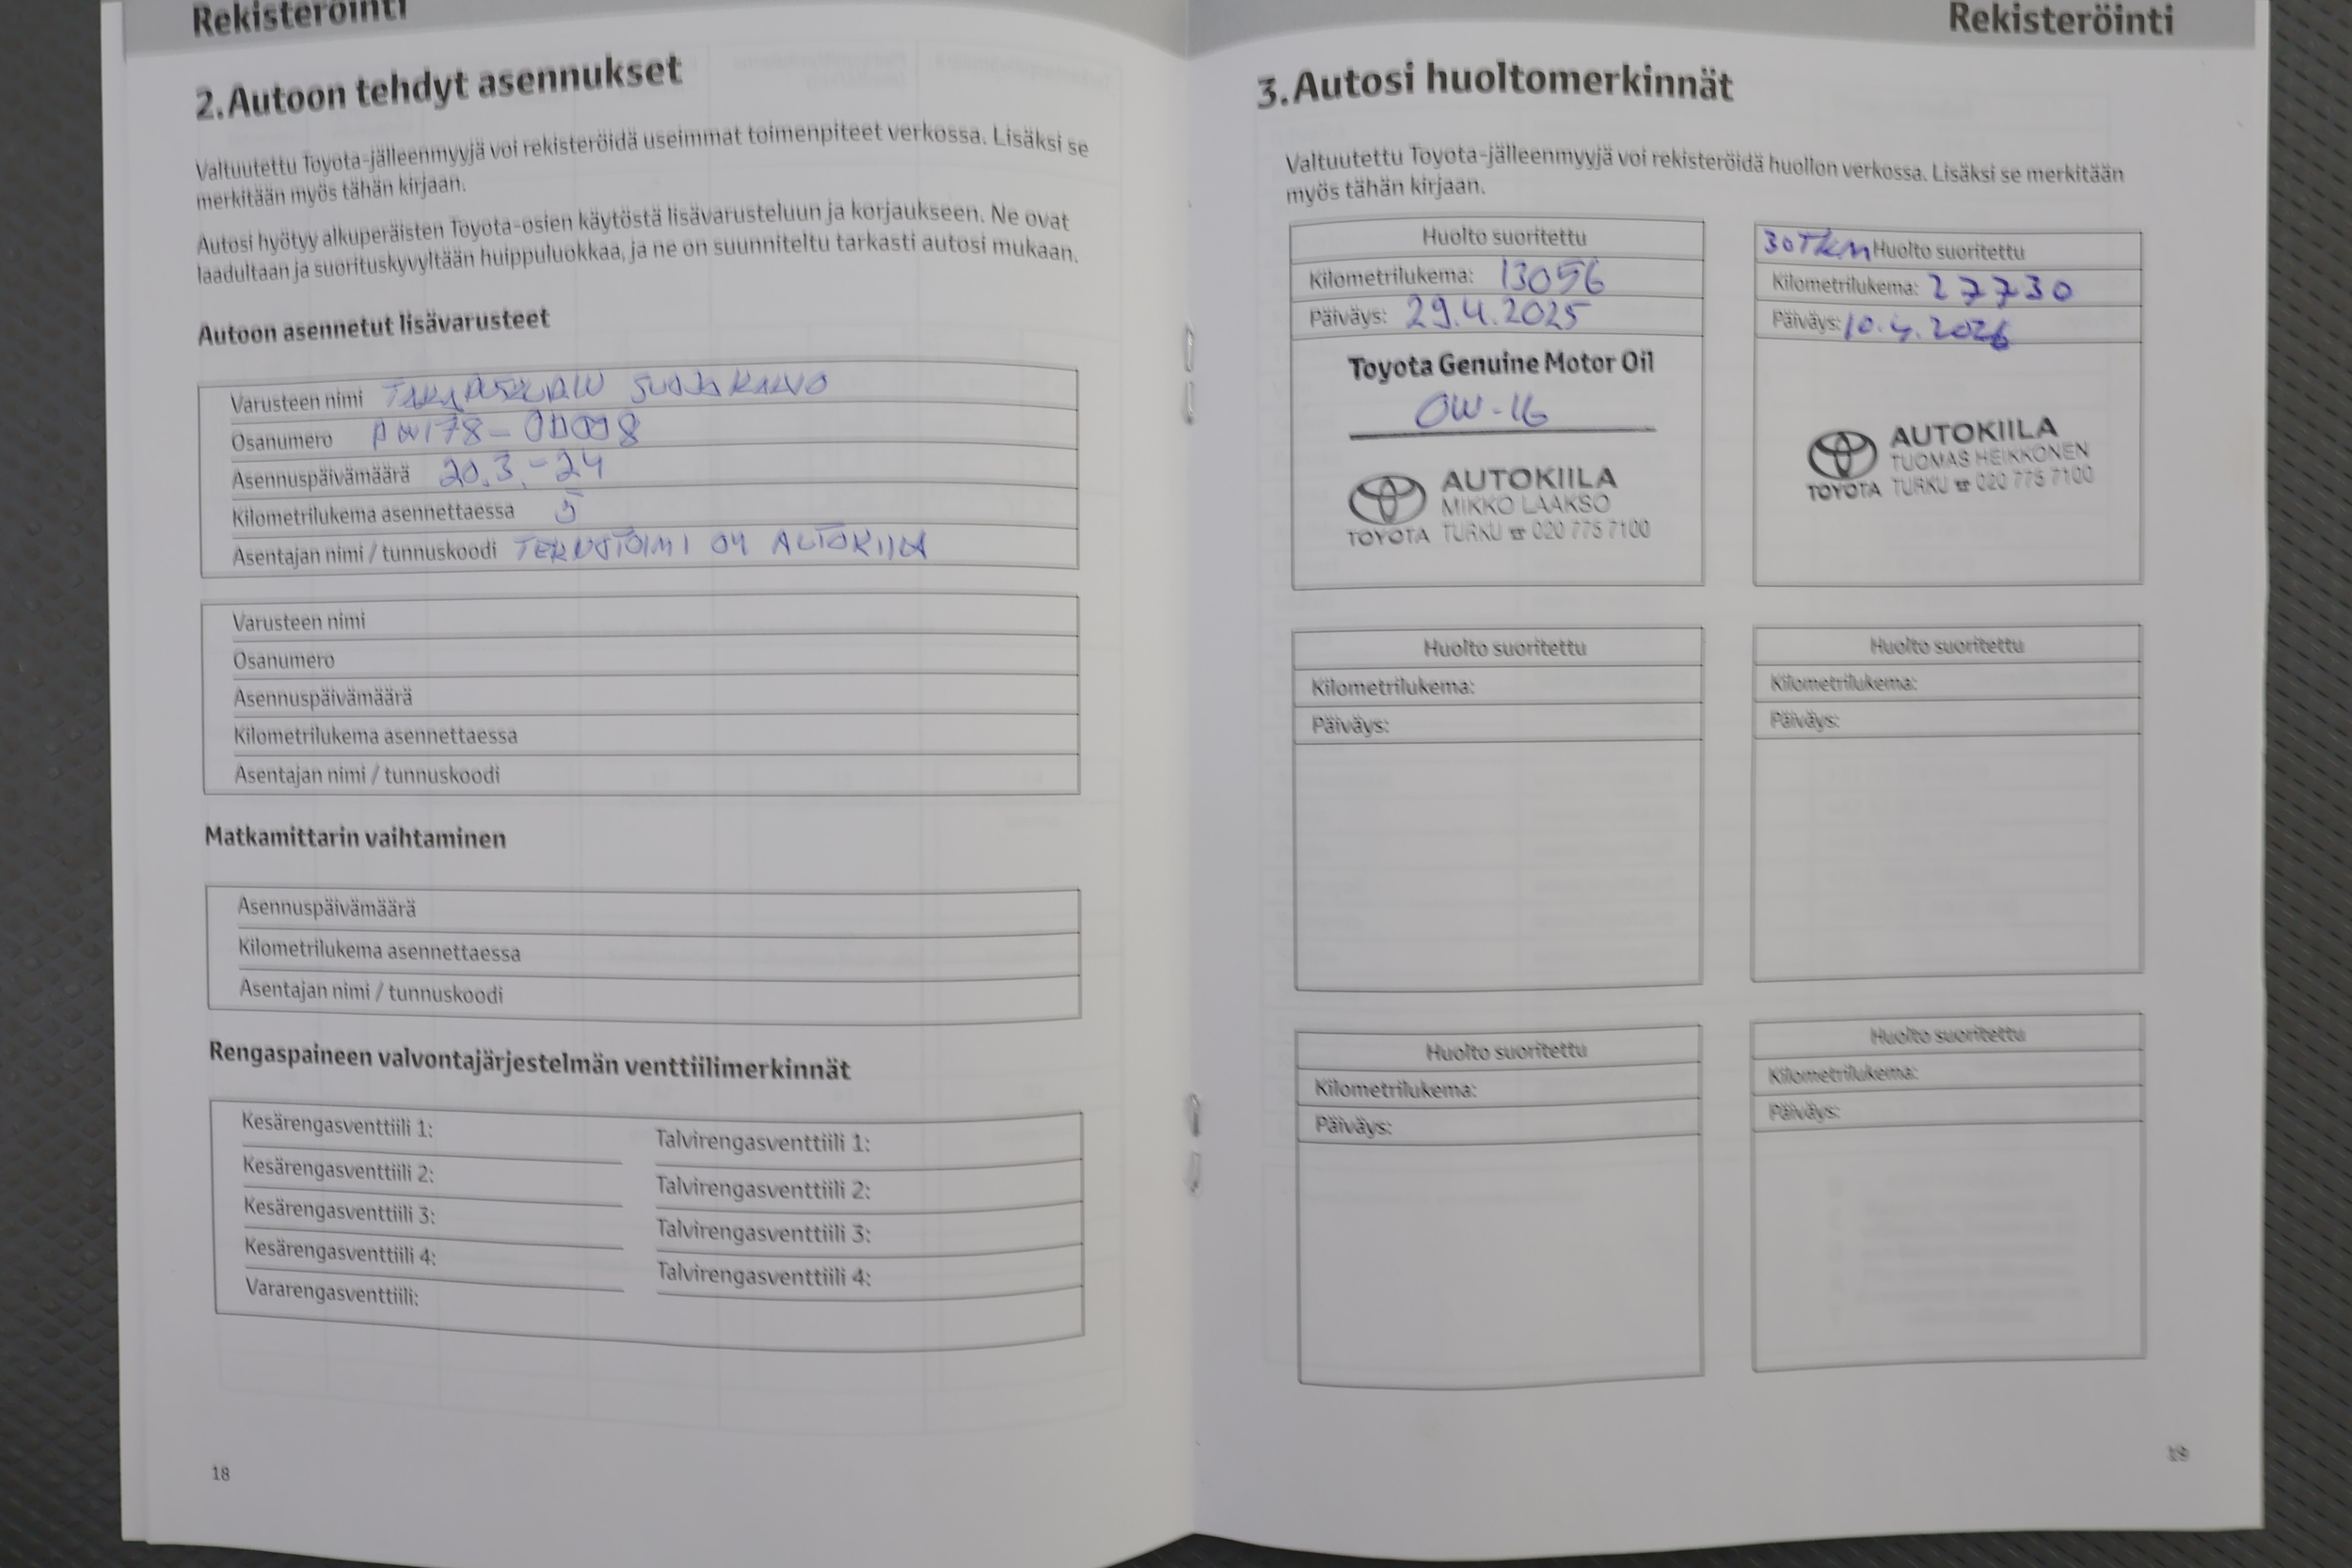 Rekisteröinti
2. Autoon tehdyt asennukset
Valtuutettu Toyota-jälleenmyyjä voi rekisteröidä useimmat toimenpiteet verkossa. Lisäksi se
merkitään myös tähän kirjaan.
Autosi hyötyy alkuperäisten Toyota-osien käytöstä lisävarusteluun ja korjaukseen. Ne ovat
laadultaan ja suorituskyvyltään huippuluokkaa, ja ne on suunniteltu tarkasti autosi mukaan.
Autoon asennetut lisävarusteet
Varusteen nimi TAKAPUSKURIN SUOJAKALVO
Osanumero PW178-0D008
Asennuspäivämäärä 20.3.-24
Kilometrilukema asennettaessa 5
Asentajan nimi / tunnuskoodi TERVSTOIMI OY AUTOKIILA
Varusteen nimi
Osanumero
Asennuspäivämäärä
Kilometrilukema asennettaessa
Asentajan nimi / tunnuskoodi
Matkamittarin vaihtaminen
Asennuspäivämäärä
Kilometrilukema asennettaessa
Asentajan nimi / tunnuskoodi
Rengaspaineen valvontajärjestelmän venttiilimerkinnät
Kesärengasventtiili 1:
Kesärengasventtiili 2:
Kesärengasventtiili 3:
Kesärengasventtiili 4:
Vararengasventtiili:
Talvirengasventtiili 1:
Talvirengasventtiili 2:
Talvirengasventtiili 3:
Talvirengasventtiili 4:
18
Rekisteröinti
3. Autosi huoltomerkinnät
Valtuutettu Toyota-jälleenmyyjä voi rekisteröidä huollon verkossa. Lisäksi se merkitään
myös tähän kirjaan.
Huolto suoritettu
Kilometrilukema: 13056
Päiväys: 29.4.2025
Toyota Genuine Motor Oil
0W-16
AUTOKIILA
MIKKO LAAKSO
TOYOTA TURKU ☎ 020 775 7100
30TKM Huolto suoritettu
Kilometrilukema: 27730
Päiväys: 10.4.2026
AUTOKIILA
TUOMAS HEIKKONEN
TOYOTA TURKU ☎ 020 775 7100
Huolto suoritettu
Kilometrilukema:
Päiväys:
Huolto suoritettu
Kilometrilukema:
Päiväys:
Huolto suoritettu
Kilometrilukema:
Päiväys:
Huolto suoritettu
Kilometrilukema:
Päiväys:
19